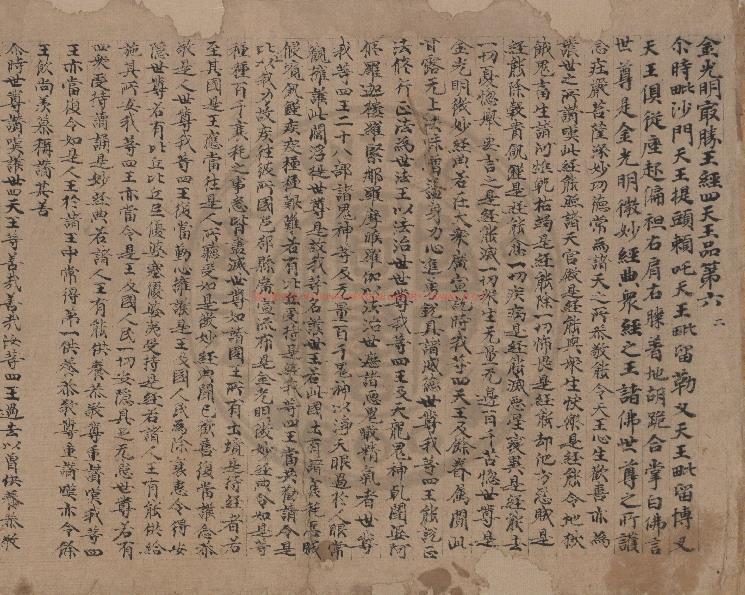 金光明冣勝王經四天王品第六 二
尒時毗沙門天王提頭賴吒天王毗留勒叉天王毗留博叉
天王俱從座起偏袒右肩右膝著地胡跪合掌白佛言
世尊是金光明微妙經典衆經之王諸佛世尊之所護
念莊嚴菩薩深妙功德常為諸天之所恭敬能令天王心生歡喜亦為
護世之所讚嘆此經能照諸天宮殿是經能與衆生快樂是經能令地獄
餓鬼畜生諸河焦乾枯竭是經能除一切怖畏是經能却他方怨賊是
經能除穀貴飢饉是經能愈一切疾病是經能滅惡星變異是經能去
一切憂惱舉要言之是經能滅一切衆生无量无邊百千苦惱世尊是
金光明微妙經典若在大衆廣宣說時我等四天王及餘眷屬聞此
甘露无上法味增益身力心進勇銳具諸威德世尊我等四王能說正
法修行正法為世法王以法治世世尊我等四王及天龍鬼神乾闥婆阿
修羅迦樓羅緊那羅摩睺羅伽以法治世遮諸惡鬼噉精氣者世尊
我等四王二十八部諸鬼神等及无量百千鬼神以淨天眼過於人眼常
觀擁護此閻浮提世尊是故我等名護世王若此國土有諸衰耗怨賊
侵境飢饉疾疫種種艱難若有比丘受持是經我等四王當共勸請令是
比丘以我力故疾往彼所國邑郡縣廣宣流布是金光明微妙經典令如是
種種百千衰耗之事悉皆盡滅世尊如諸國王所有土境是持經者若
至其國是王應當往是人所聽受如是微妙經典聞已歡喜復當護念恭
敬是人世尊我等四王復當勤心擁護是王及國人民為除衰患令得安
隱世尊若有比丘比丘尼優婆塞優婆夷受持是經若諸人王有能供給
施其所安我等四王亦當令是王及國人民一切安隱具足无患世尊若有
四衆受持讀誦是妙經典若諸人王有能供養恭敬尊重讚嘆我等四
王亦當復令如是人王於諸王中常得第一供養恭敬尊重讚嘆亦令餘
王欽尚羨慕稱讚其善
尒時世尊讚嘆護世四天王等善哉善哉汝等四王過去以曾供養恭敬